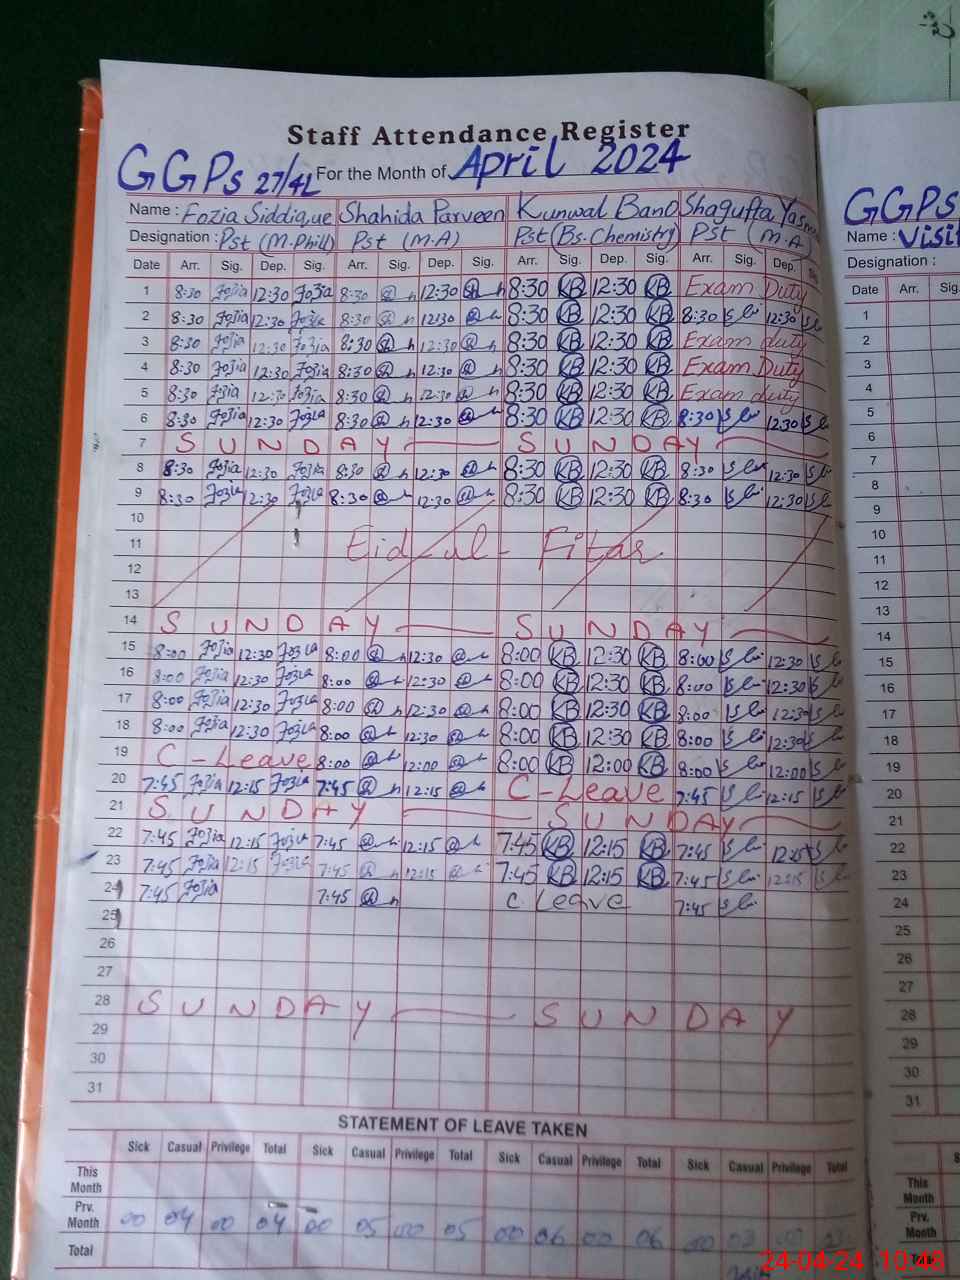 Staff Attendance Register
GGPS 27/4L For the Month of April 2024
Name : Fozia Siddique Shahida Parveen Kunwal Bano Shagufta
Designation : Pst (M.Phill) Pst (M.A) Pst (Bs.Chemistry) Pst (M.A)
Date Arr. Sig. Dep. Sig. Arr. Sig. Dep. Sig. Arr. Sig. Dep. Sig. Arr. Sig. Dep. Sig.
1 8:30 Fozia 12:30 Fozia 8:30 12:30 8:30 KB 12:30 KB Exam Duty
2 8:30 Fozia 12:30 Fozia 8:30 12:30 8:30 KB 12:30 KB 8:30 12:30
3 8:30 Fozia 12:30 Fozia 8:30 12:30 8:30 KB 12:30 KB Exam duty
4 8:30 Fozia 12:30 Fozia 8:30 12:30 8:30 KB 12:30 KB Exam Duty
5 8:30 Fozia 12:30 Fozia 8:30 12:30 8:30 KB 12:30 KB Exam duty
6 8:30 Fozia 12:30 Fozia 8:30 12:30 8:30 KB 12:30 KB 8:30 12:30
7 SUNDAY SUNDAY
8 8:30 Fozia 12:30 Fozia 8:30 12:30 8:30 KB 12:30 KB 8:30 12:30
9 8:30 Fozia 12:30 Fozia 8:30 12:30 8:30 KB 12:30 KB 8:30 12:30
10
11 Eid-ul-Fitar
12
13
14 SUNDAY SUNDAY
15 8:00 Fozia 12:30 Fozia 8:00 12:30 8:00 KB 12:30 KB 8:00 12:30
16 8:00 Fozia 12:30 Fozia 8:00 12:30 8:00 KB 12:30 KB 8:00 12:30
17 8:00 Fozia 12:30 Fozia 8:00 12:30 8:00 KB 12:30 KB 8:00 12:30
18 8:00 Fozia 12:30 Fozia 8:00 12:30 8:00 KB 12:30 KB 8:00 12:30
19 C-Leave 8:00 12:00 8:00 KB 12:00 KB 8:00 12:00
20 7:45 Fozia 12:15 Fozia 7:45 12:15 C-Leave 7:45 12:15
21 SUNDAY SUNDAY
22 7:45 Fozia 12:15 Fozia 7:45 12:15 7:45 KB 12:15 KB 7:45 12:15
23 7:45 Fozia 12:15 Fozia 7:45 12:15 7:45 KB 12:15 KB 7:45 12:15
24 7:45 Fozia 7:45 C. Leave 7:45
25
26
27
28 SUNDAY SUNDAY
29
30
31
STATEMENT OF LEAVE TAKEN
Sick Casual Privilege Total Sick Casual Privilege Total Sick Casual Privilege Total Sick Casual Privilege Total
This Month
Prv. Month 00 04 00 04 00 05 00 05 00 06 00 06 00 03
Total
GGPS
Name :
Designation :
Date Arr. Sig.
1
2
3
4
5
6
7
8
9
10
11
12
13
14
15
16
17
18
19
20
21
22
23
24
25
26
27
28
29
30
31
This Month
Prv. Month
24-04-24 10:48